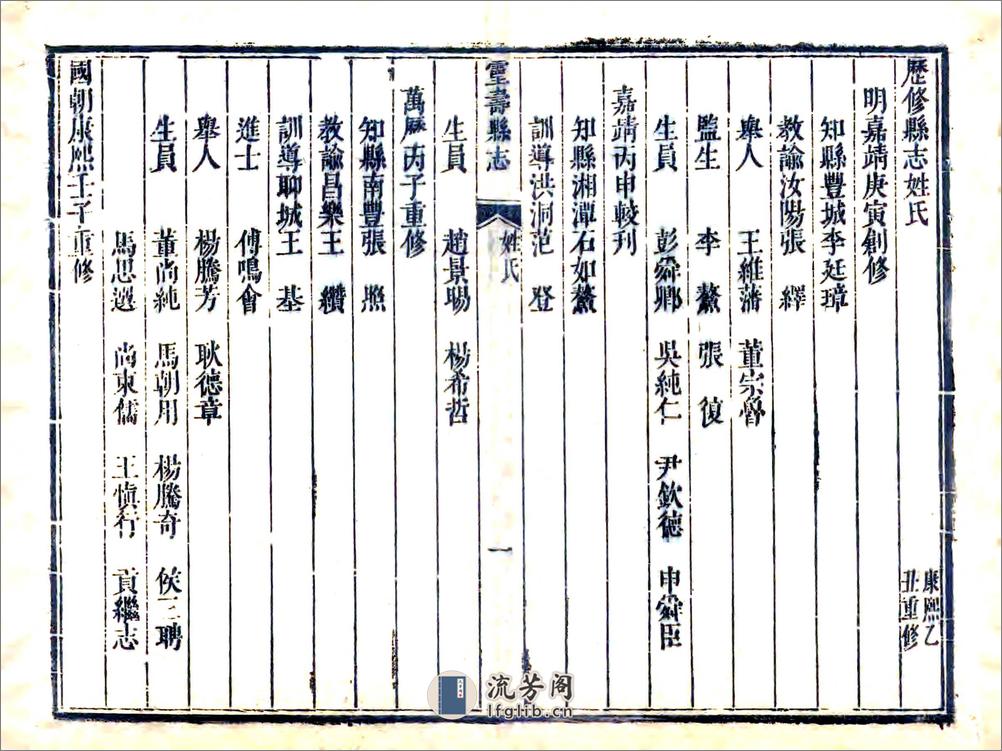 歷修縣志姓氏　康熙乙丑重修
明嘉靖庚寅創修
知縣豐城李廷璋
教諭汝陽張　繹
舉人　王維藩　董宗魯
監生　李　鰲　張　復
生員　彭舜卿　吳純仁　尹欽德　申舜臣
嘉靖丙申較刊
知縣湘潭石如鰲
訓導洪洞范　登
靈壽縣志　姓氏　一
生員　趙景暘　楊希哲
萬曆丙子重修
知縣南豐張　照
教諭昌樂王　纘
訓導聊城王　基
進士　傅鳴會
舉人　楊騰芳　耿德章
生員　董尚純　馬朝用　楊騰奇　侯三聘
馬思選　尚東儒　王愼行　貢繼志
國朝康熙壬子重修
流芳阁
lfglib.cn